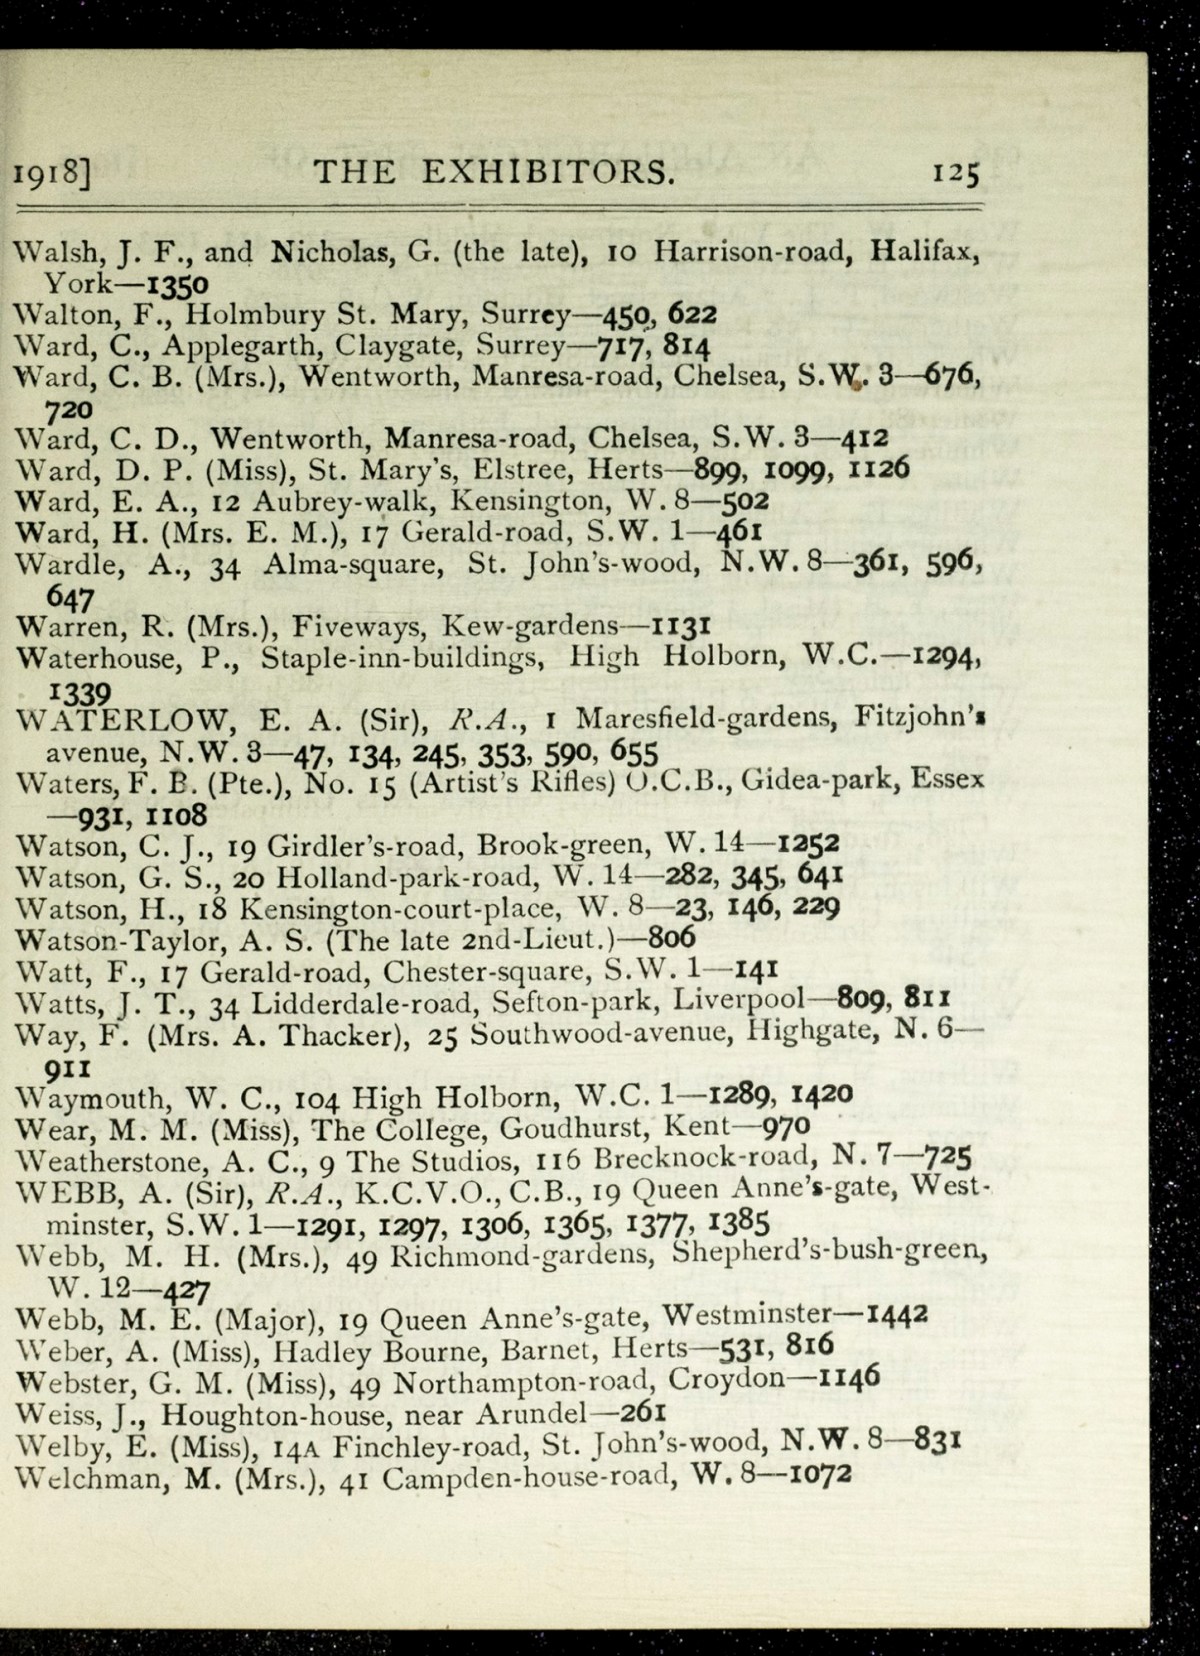 1918] THE EXHIBITORS. 125
Walsh, J. F., and Nicholas, G. (the late), 10 Harrison-road, Halifax,
York—1350
Walton, F., Holmbury St. Mary, Surrey—450, 622
Ward, C., Applegarth, Claygate, Surrey—717, 814
Ward, C. B. (Mrs.), Wentworth, Manresa-road, Chelsea, S.W. 3—676,
720
Ward, C. D., Wentworth, Manresa-road, Chelsea, S.W. 3—412
Ward, D. P. (Miss), St. Mary's, Elstree, Herts—899, 1099, 1126
Ward, E. A., 12 Aubrey-walk, Kensington, W. 8—502
Ward, H. (Mrs. E. M.), 17 Gerald-road, S.W. 1—461
Wardle, A., 34 Alma-square, St. John's-wood, N.W. 8—361, 596,
647
Warren, R. (Mrs.), Fiveways, Kew-gardens—1131
Waterhouse, P., Staple-inn-buildings, High Holborn, W.C.—1294,
1339
WATERLOW, E. A. (Sir), R.A., 1 Maresfield-gardens, Fitzjohn's
avenue, N.W. 3—47, 134, 245, 353, 590, 655
Waters, F. B. (Pte.), No. 15 (Artist's Rifles) O.C.B., Gidea-park, Essex
—931, 1108
Watson, C. J., 19 Girdler's-road, Brook-green, W. 14—1252
Watson, G. S., 20 Holland-park-road, W. 14—282, 345, 641
Watson, H., 18 Kensington-court-place, W. 8—23, 146, 229
Watson-Taylor, A. S. (The late 2nd-Lieut.)—806
Watt, F., 17 Gerald-road, Chester-square, S.W. 1—141
Watts, J. T., 34 Lidderdale-road, Sefton-park, Liverpool—809, 811
Way, F. (Mrs. A. Thacker), 25 Southwood-avenue, Highgate, N. 6—
911
Waymouth, W. C., 104 High Holborn, W.C. 1—1289, 1420
Wear, M. M. (Miss), The College, Goudhurst, Kent—970
Weatherstone, A. C., 9 The Studios, 116 Brecknock-road, N. 7—725
WEBB, A. (Sir), R.A., K.C.V.O., C.B., 19 Queen Anne's-gate, West-
minster, S.W. 1—1291, 1297, 1306, 1365, 1377, 1385
Webb, M. H. (Mrs.), 49 Richmond-gardens, Shepherd's-bush-green,
W. 12—427
Webb, M. E. (Major), 19 Queen Anne's-gate, Westminster—1442
Weber, A. (Miss), Hadley Bourne, Barnet, Herts—531, 816
Webster, G. M. (Miss), 49 Northampton-road, Croydon—1146
Weiss, J., Houghton-house, near Arundel—261
Welby, E. (Miss), 14A Finchley-road, St. John's-wood, N.W. 8—831
Welchman, M. (Mrs.), 41 Campden-house-road, W. 8—1072